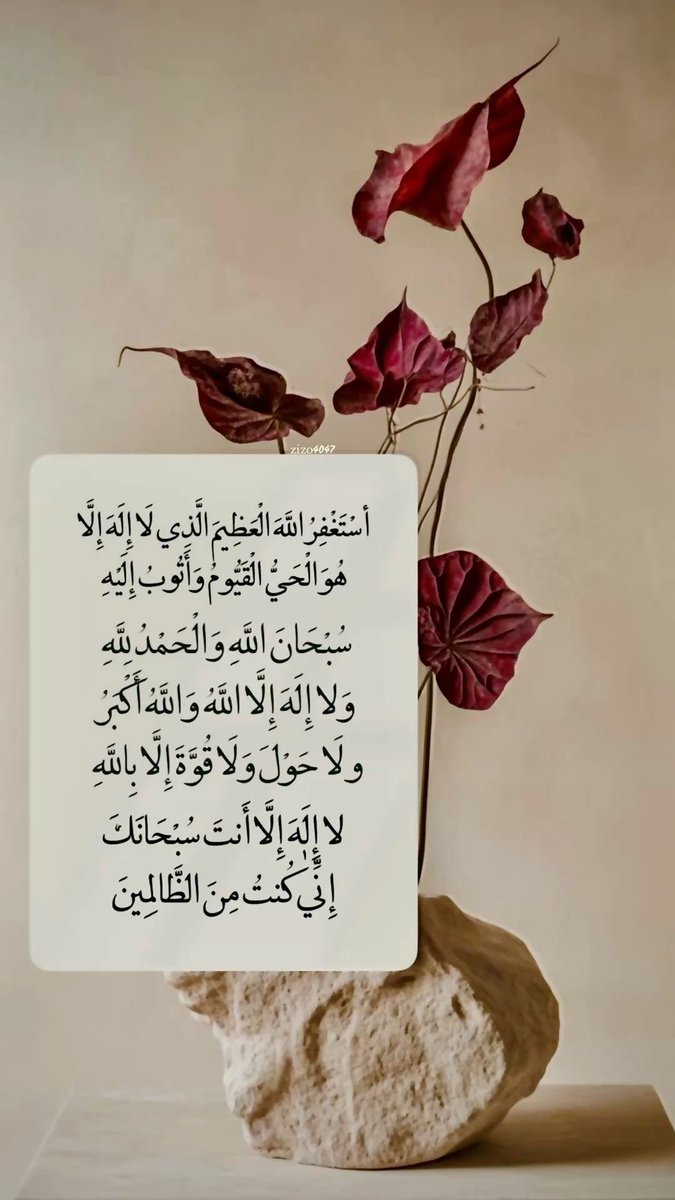 zizo4047
أسْتَغْفِرُ اللَّهَ الْعَظِيمَ الَّذِي لَا إِلَهَ إِلَّا
هُوَ الْحَيُّ الْقَيُّومُ وَأَتُوبُ إِلَيْهِ
سُبْحَانَ اللَّهِ وَالْحَمْدُ لِلَّهِ
وَلا إِلَهَ إِلَّا اللَّهُ وَاللَّهُ أَكْبَرُ
ولَا حَوْلَ وَلَا قُوَّةَ إِلَّا بِاللَّهِ
لا إِلَٰهَ إِلَّا أَنتَ سُبْحَانَكَ
إِنِّي كُنتُ مِنَ الظَّالِمِينَ